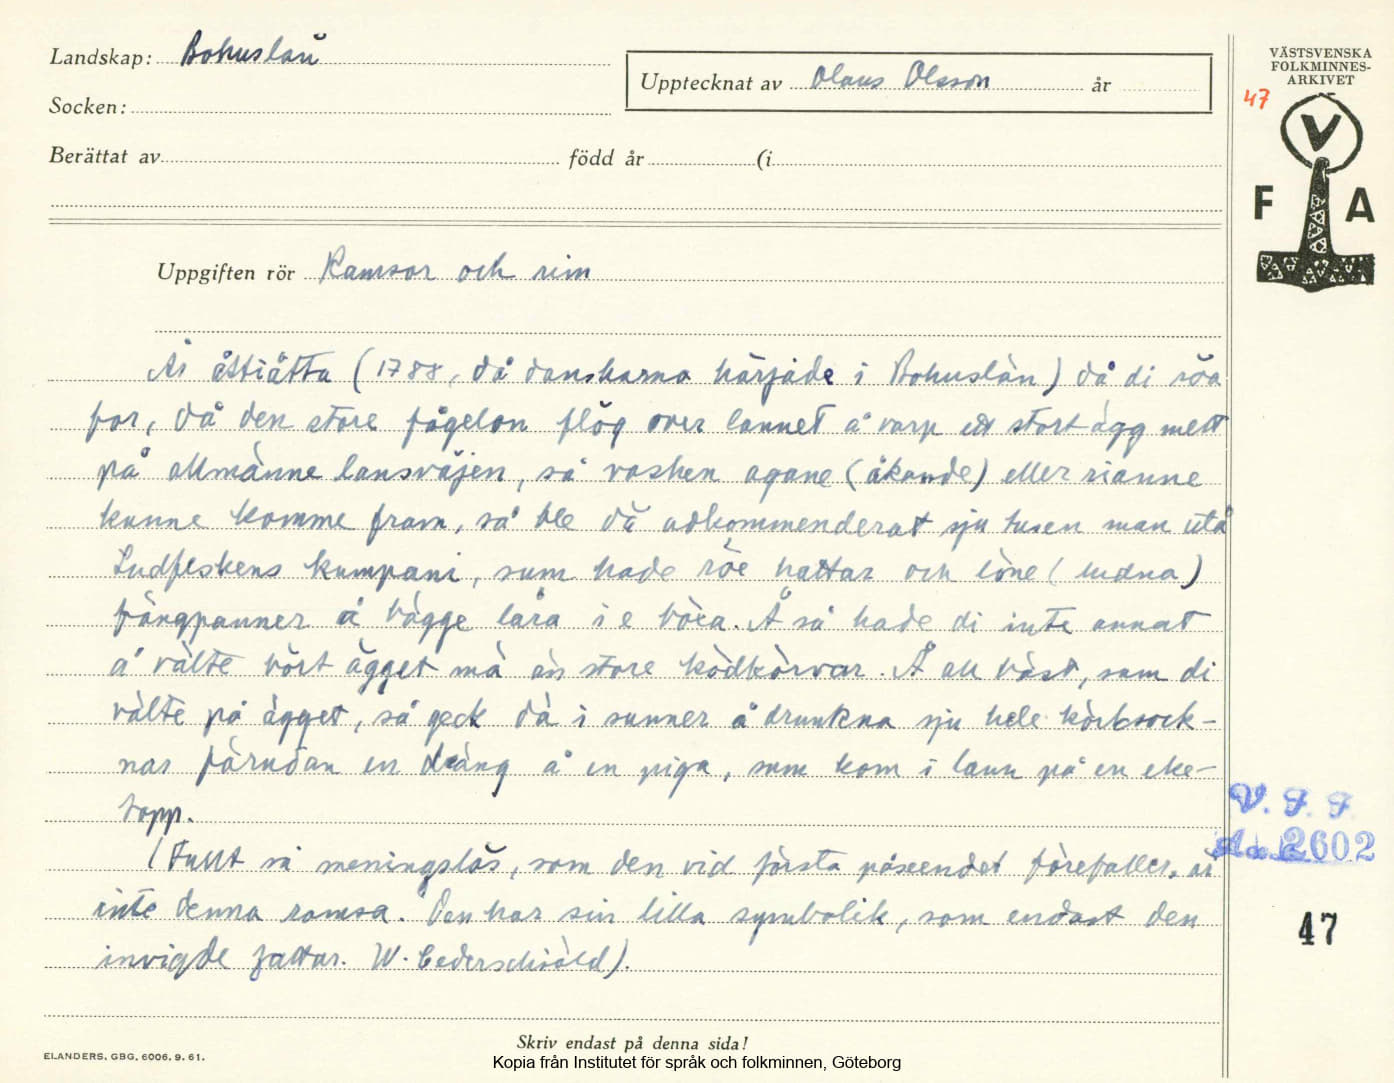 Landskap: Bohuslän
Upptecknat av Olaus Olsson år
Socken:
Berättat av född år (i
VÄSTSVENSKA
FOLKMINNES-
ARKIVET
47
V
F A
Uppgiften rör Ramsor och rim
År åttiåtta (1788, då danskarna härjade i Bohuslän) då di röa
for, då den store fågelen flög over lannet å varp ett stort ägg mett
på allmänne lansväjen, så vasken agane (åkande) eller rianne
kunne komme fram, så ble dä adkommenderat sju tusen man utå
Ludfeskens kumpani, sum hade röe hattar och löne (ludna)
fångpanner å bägge låra i e böxa. Å så hade di inte annat
å välte bört ägget mä än store ködkörvar. Å all bäst, som di
välte på ägget, så geck dä i sunner å drunkna sju hele körksock-
nar förudan en dräng å en piga, sum kom i lann på en eke-
topp.
(Fullt så meningslös, som den vid första påseendet förefaller, är
inte denna ramsa. Den har sin lilla symbolik, som endast den
invigde fattar. W. Cederschiöld).
V. F. F.
2602
47
Skriv endast på denna sida!
ELANDERS, GBG, 6006. 9. 61.
Kopia från Institutet för språk och folkminnen, Göteborg